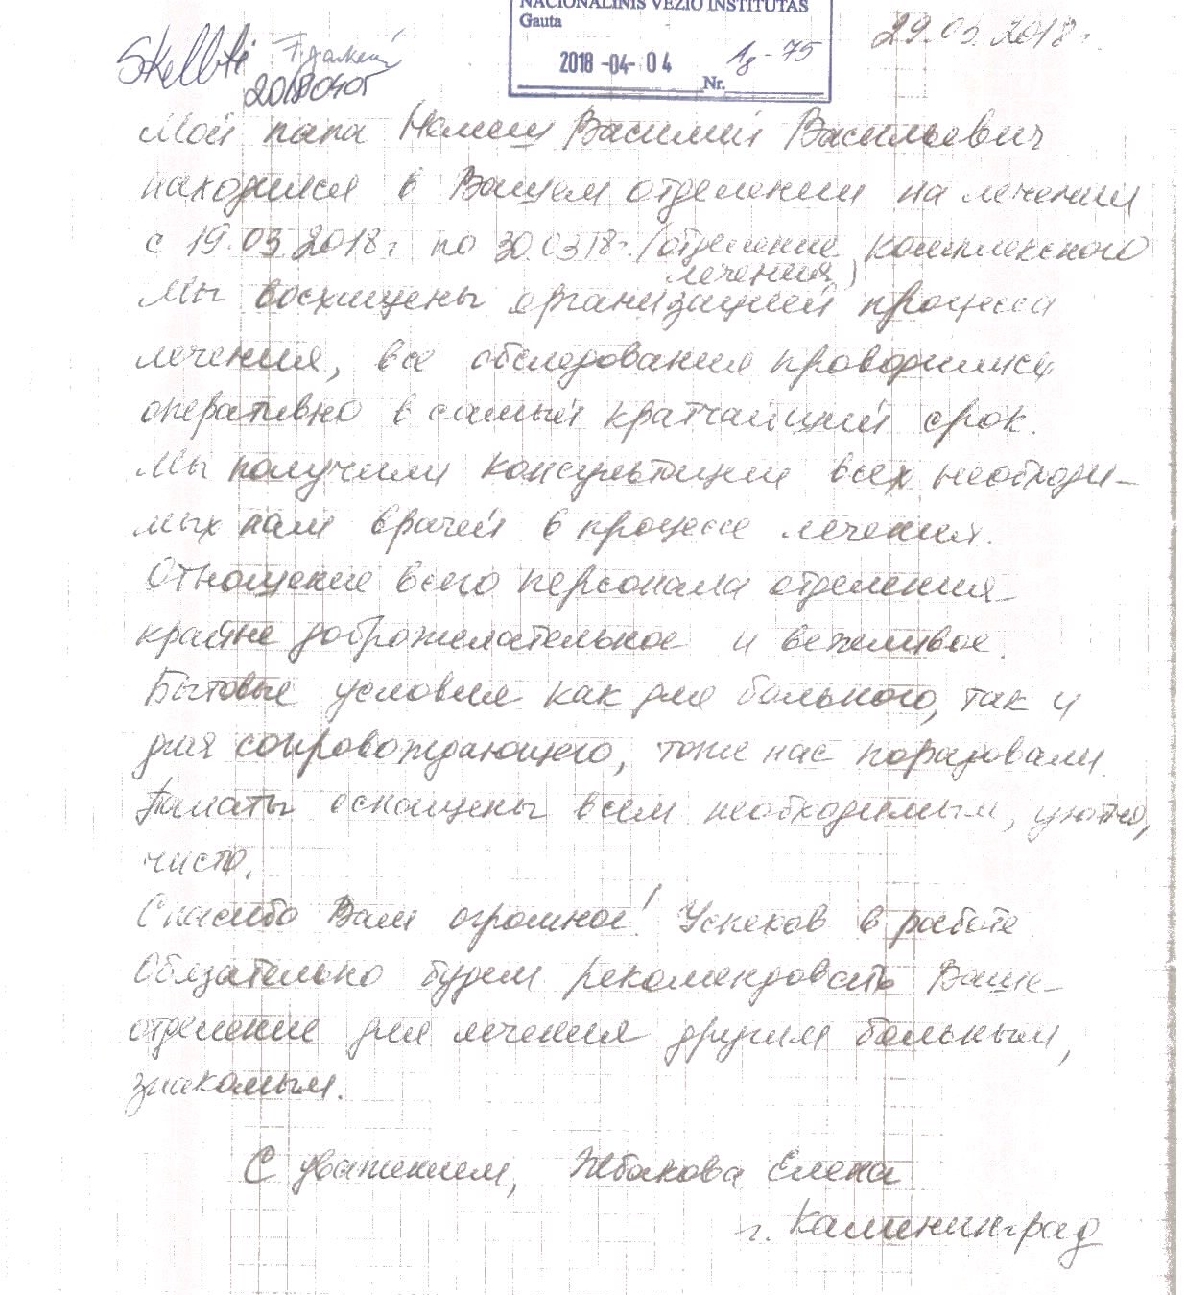 NACIONALINIS VĖŽIO INSTITUTAS
Gauta
2018 -04- 0 4
Nr.
29.03.2018г.
Skelbti
20180405
Мой папа Василий Васильевич
находился в Вашем отделении на лечении
с 19.03.2018г. по 30.03.18г. (отделение комплексного
лечения)
Мы восхищены организацией процесса
лечения, все обследования проводились
оперативно в самый кратчайший срок.
Мы получили консультации всех необходи-
мых нам врачей в процессе лечения.
Отношение всего персонала отделения
крайне доброжелательное и вежливое.
Бытовые условия как для больного, так и
для сопровождающего, тоже нас порадовали.
Палаты оснащены всем необходимым, уютно,
чисто.
Спасибо Вам огромное! Успехов в работе
Обязательно будем рекомендовать Ваше
отделение для лечения другим больным,
знакомым.
С уважением, Елена
г. Калининград